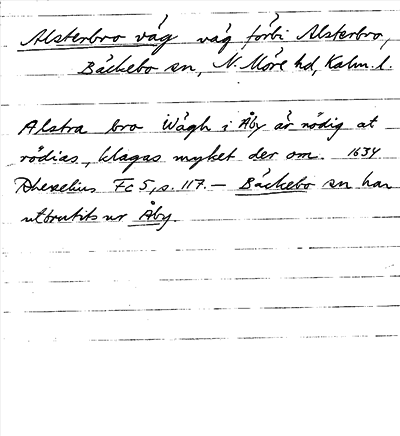 Alsterbro väg väg förbi Alsterbro,
Bäckebo sn, N. Möre hd, Kalm. l.
Alstra bro Wägh i Åby är nödig at
rödias, klagas myket der om. 1634
Rhezelius Fc 5, s. 117. — Bäckebo sn har
utbrutits ur Åby.